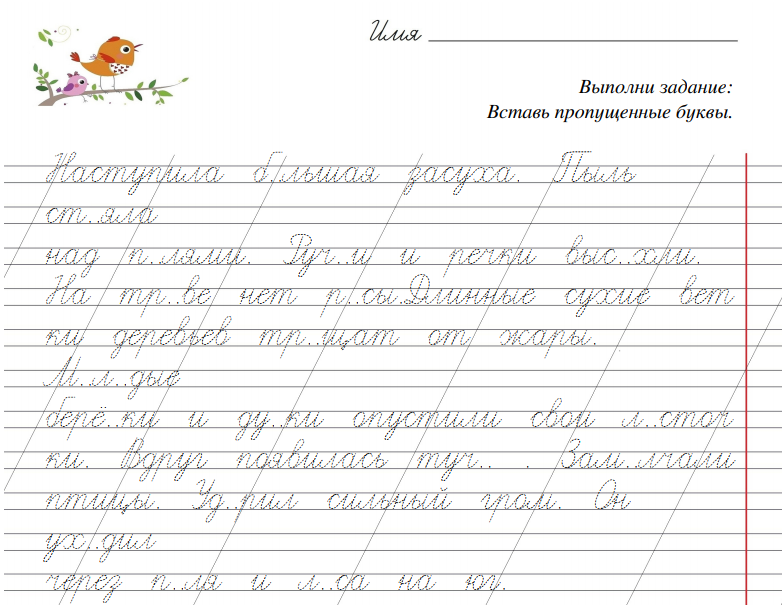 Имя
Выполни задание:
Вставь пропущенные буквы.
Наступила б.льшая засуха. Пыль
ст.яла
над п..лями. Руч..и и речки выс..хли.
На тр..ве нет р..сы.Длинные сухие вет
ки деревьев тр..щат от жары.
М..л..дые
берё..ки и ду..ки опустили свои л..сточ
ки. Вдруг появилась туч.. . Зам..лчали
птицы. Уд..рил сильный гром. Он
ух..дил
через п..ля и л..са на юг.